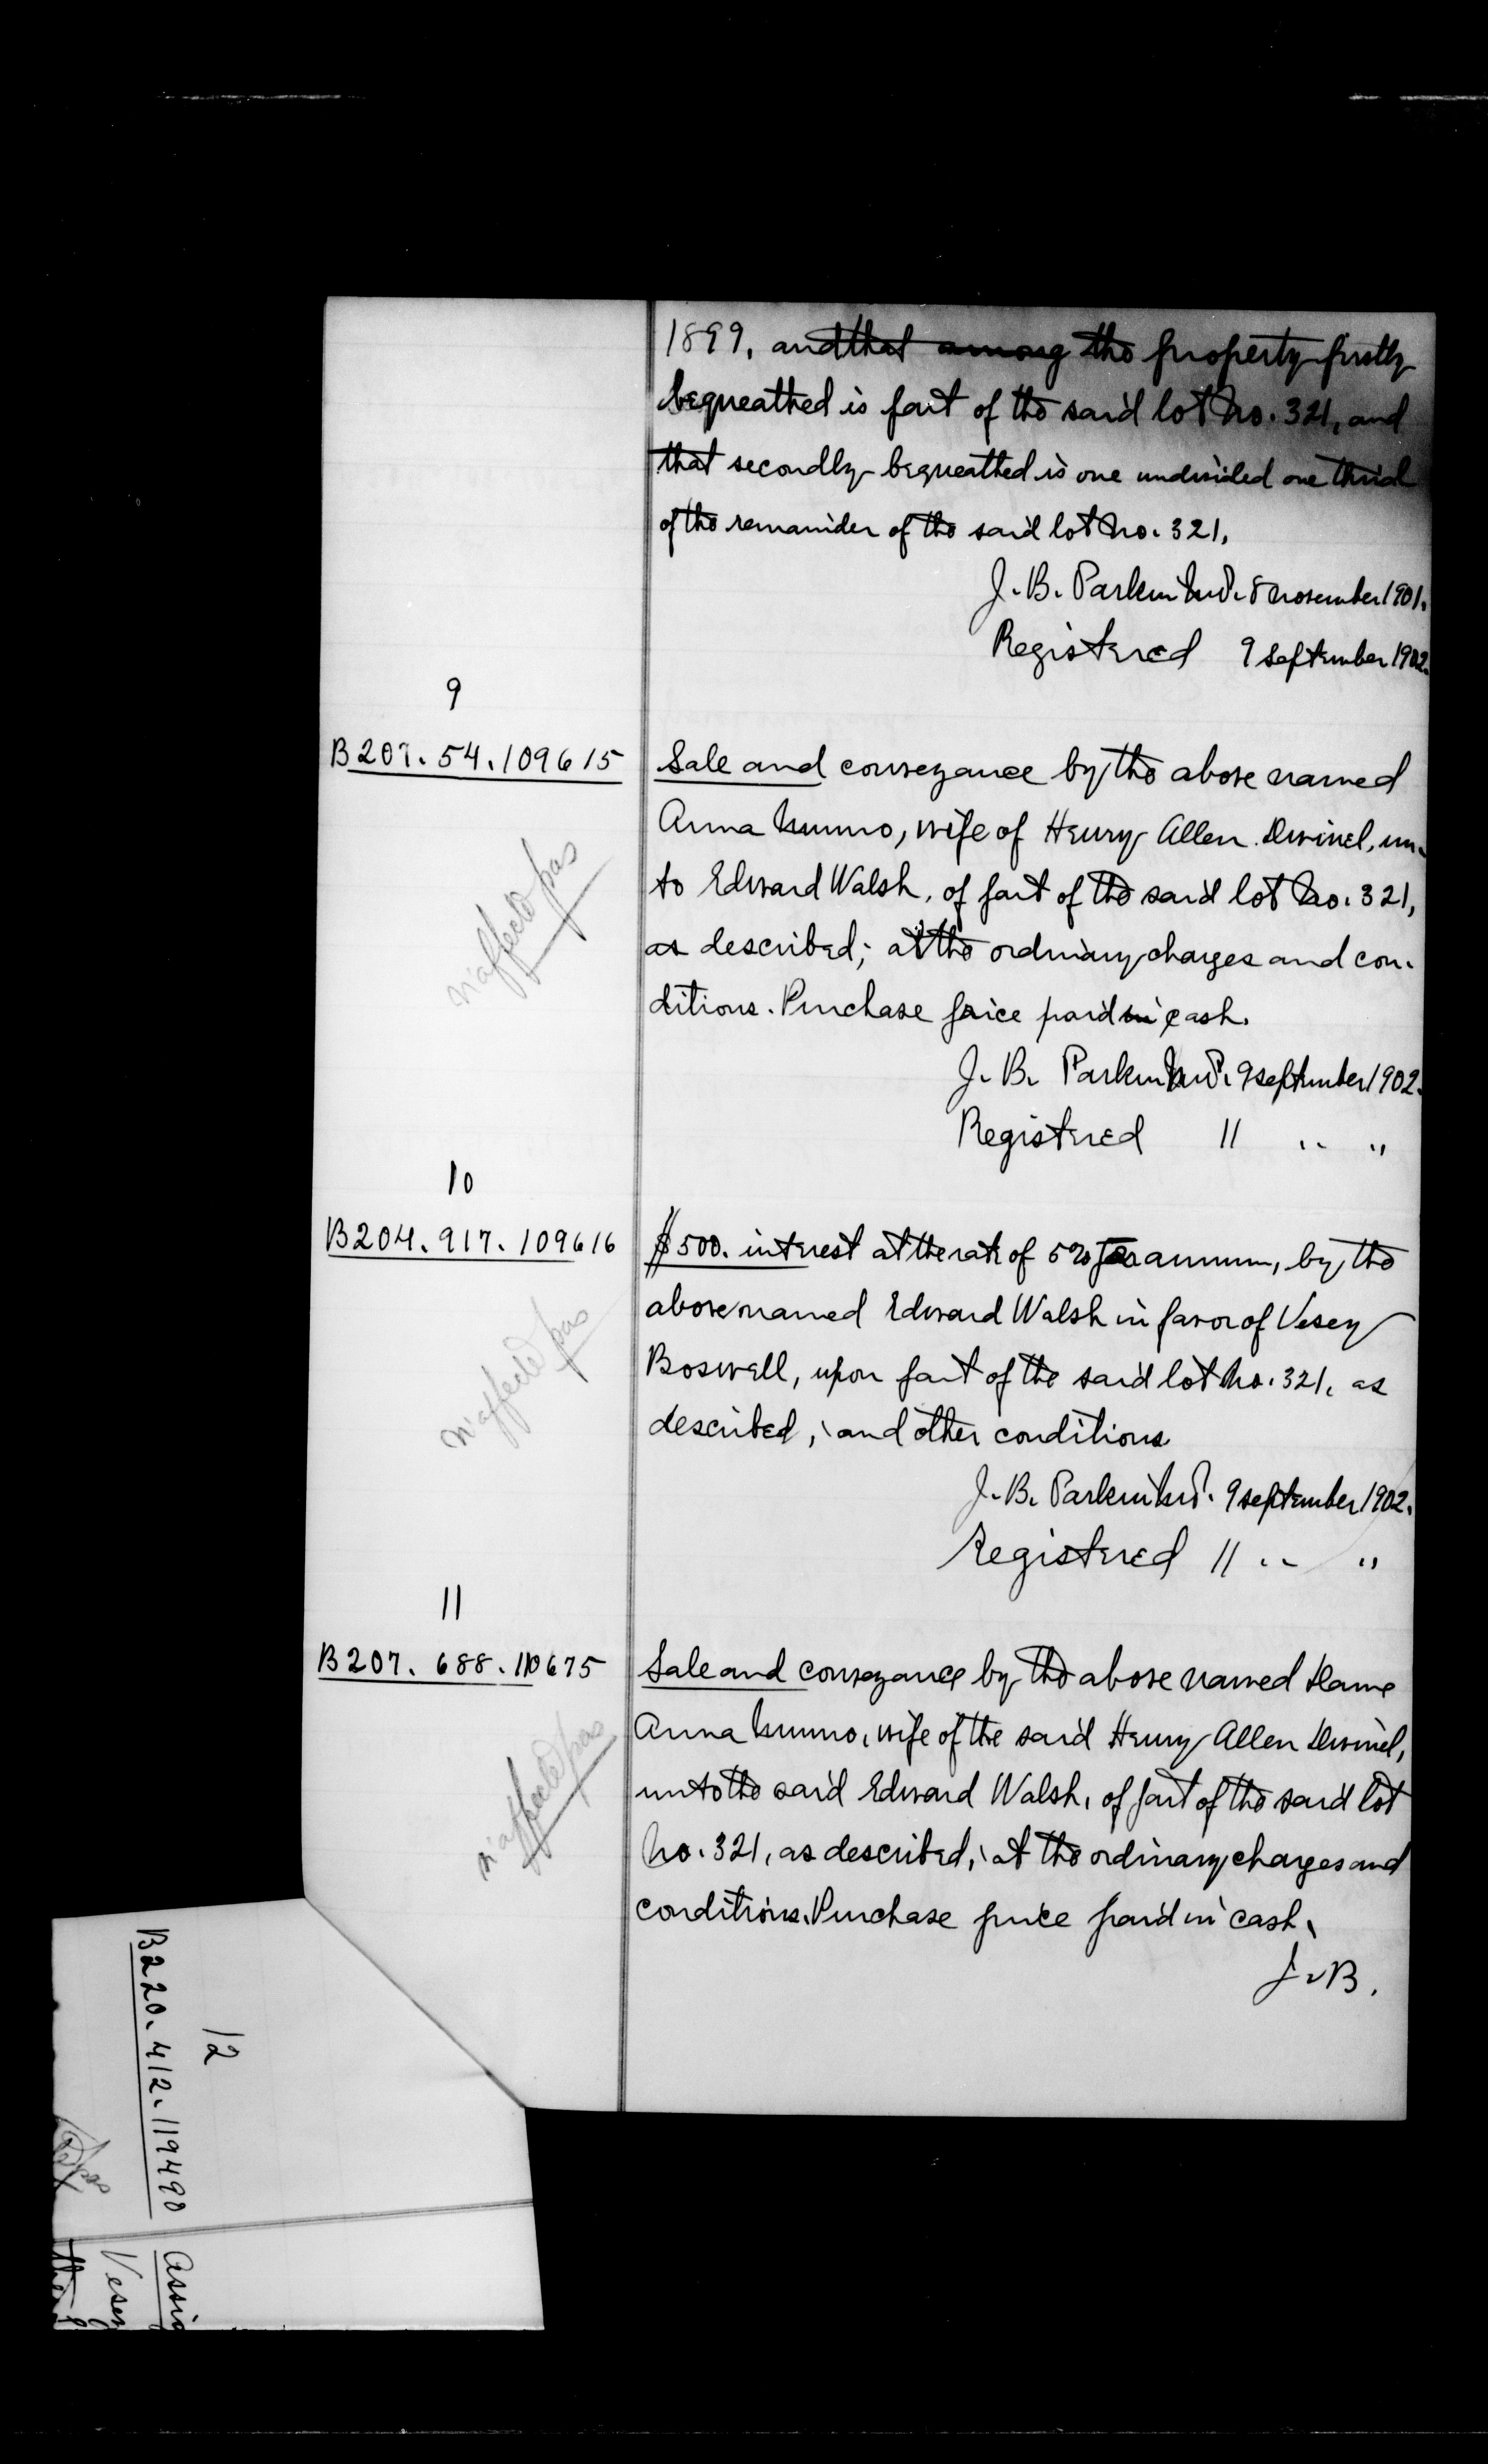 1899, and that among the property firstly
bequeathed is part of the said lot No. 321, and
that secondly bequeathed is one undivided one third
of the remainder of the said lot No. 321.
J. B. Parkin N.P. 8 November 1901.
Registered 9 September 1902.
9
B 207. 54. 109615
Sale and conveyance by the above named
Anna Munro, wife of Henry Allen Dwinel, un-
to Edward Walsh, of part of the said lot No. 321,
as described; at the ordinary charges and con-
ditions. Purchase price paid in cash.
n'affecte pas
J. B. Parkin N.P. 9 September 1902.
Registered 11 " "
10
B 204. 917. 109616
$500. interest at the rate of 5% per annum, by the
above named Edward Walsh in favor of Vesey
Boswell, upon part of the said lot No. 321, as
described; and other conditions
n'affecte pas
J. B. Parkin N.P. 9 September 1902.
Registered 11 " "
11
B 207. 688. 110675
Sale and conveyance by the above named Dame
Anna Munro, wife of the said Henry Allen Dwinel,
unto the said Edward Walsh, of part of the said lot
No. 321, as described; at the ordinary charges and
conditions. Purchase price paid in cash.
n'affecte pas
J. B.
12
B 220. 412. 119490
pas
Assig
Vesey
the